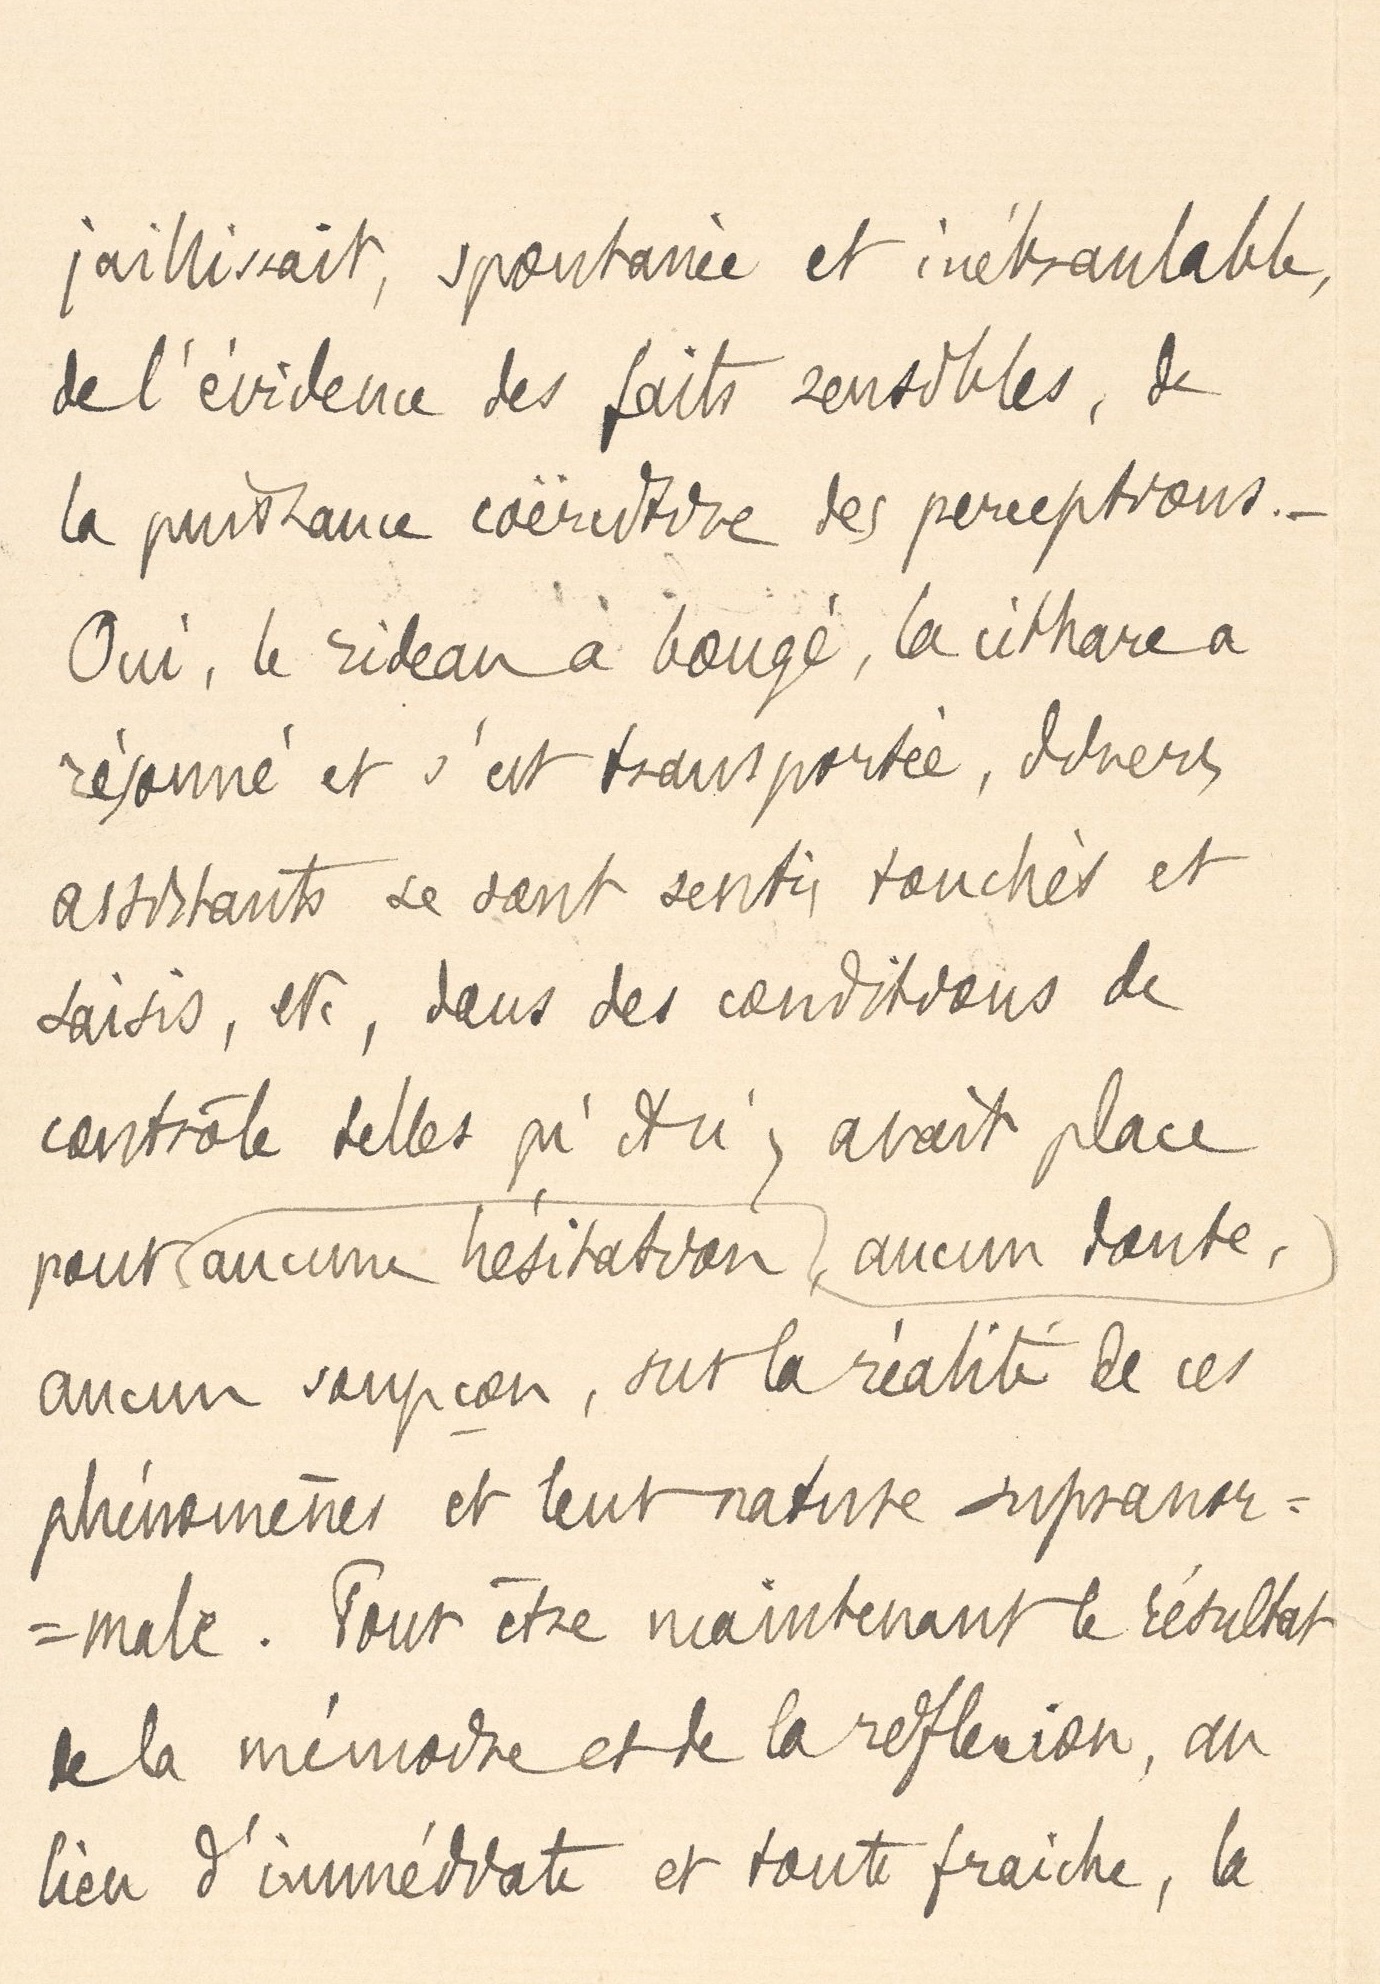 jaillissait, spontanée et inébranlable,
de l'évidence des faits sensibles, de
la puissance coërcitive des perceptions.–
Oui, le rideau a bougé, la cithare a
résonné et s'est transportée, divers
assistants se sont sentis touchés et
saisis, etc, dans des conditions de
contrôle telles qu'il n'y avait place
pour aucune hésitation, aucun doute,
aucun soupçon, sur la réalité de ces
phénomènes et leur nature supranor=
=male. Pour être maintenant le résultat
de la mémoire et de la réflexion, au
lieu d'immédiate et toute fraiche, la